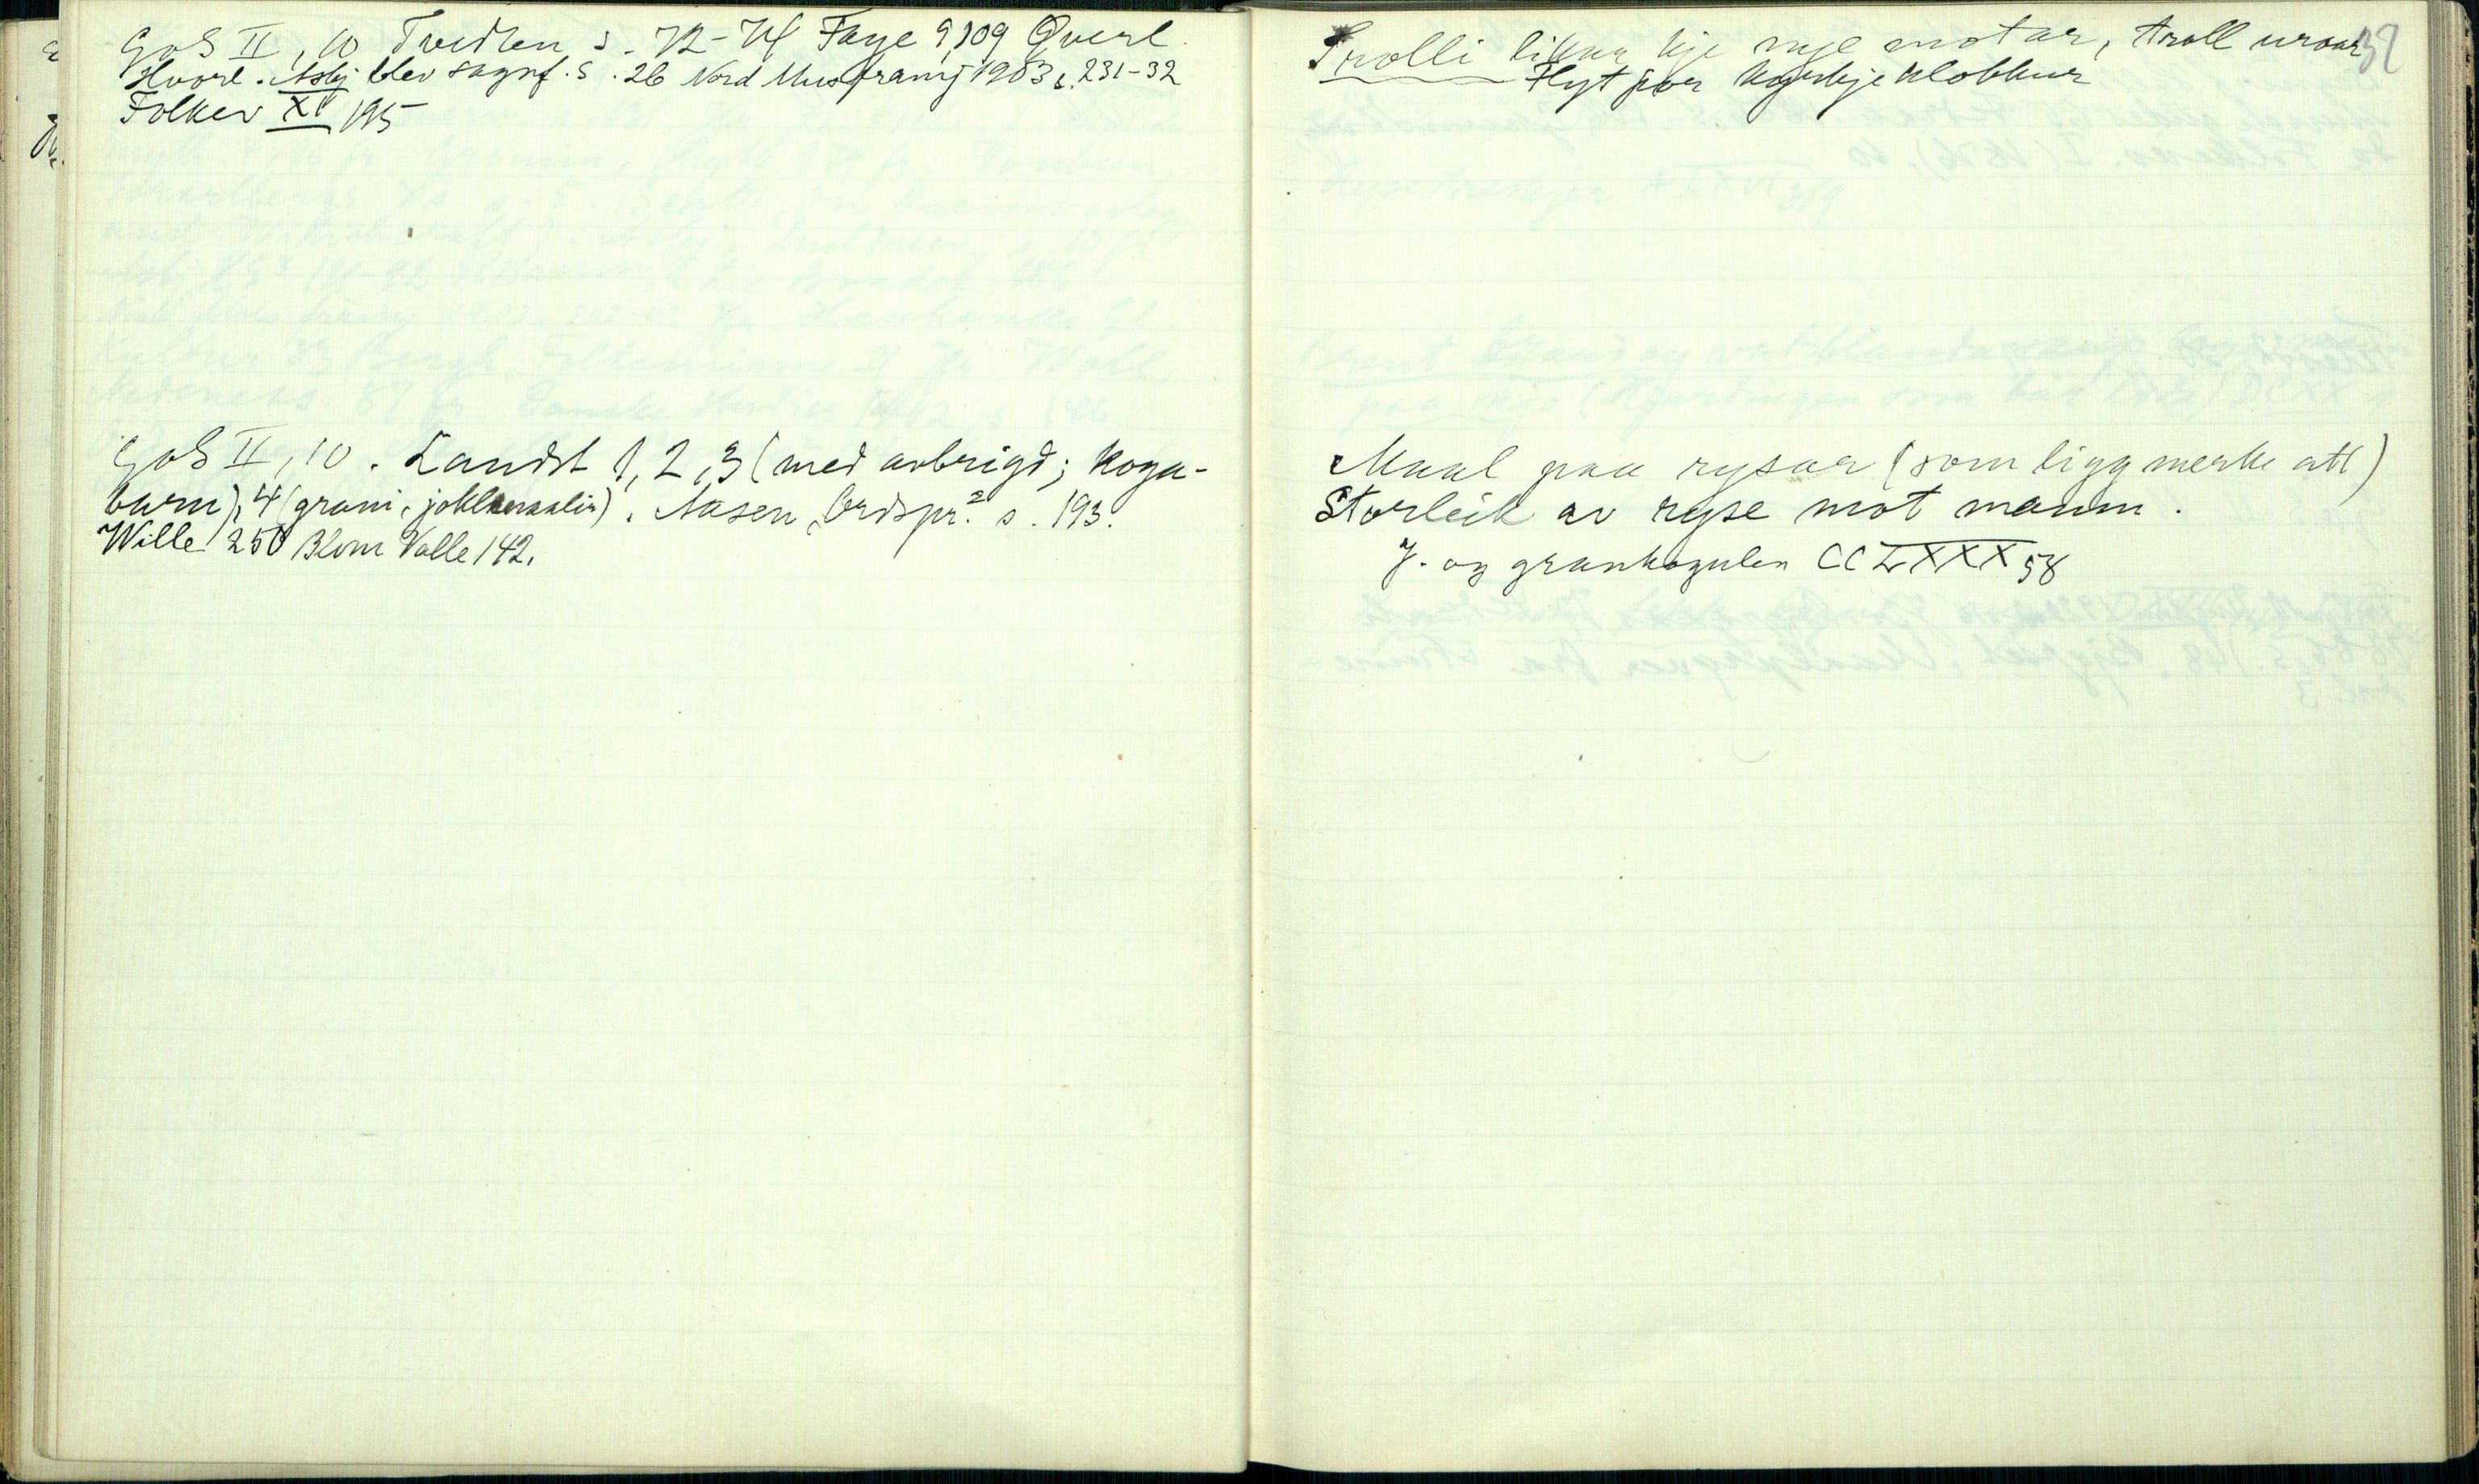 GoS II, 10 Tvedten s. 72-74 Faye 9, 109 Qverl.
Hvorl. Asbj blev sagnf. s. 26 Nord Mus framj 1903 s. 231-32
Folkev XI 195
GoS II, 10. Landst 1, 2, 3 (med avbrigd; Koga-
barn), 4 (grani, ). Aasen, Ordspr.² s. 193.
Wille 250 Blom Valle 142.
Trolli likar kje nye motar, troll uroar 32
Flyt for kyrkjeklokkur
Maal paa rysar (som ligg merke att)
Storleik av ryse mot mann.
J. og grankogulen CCLXXX 58